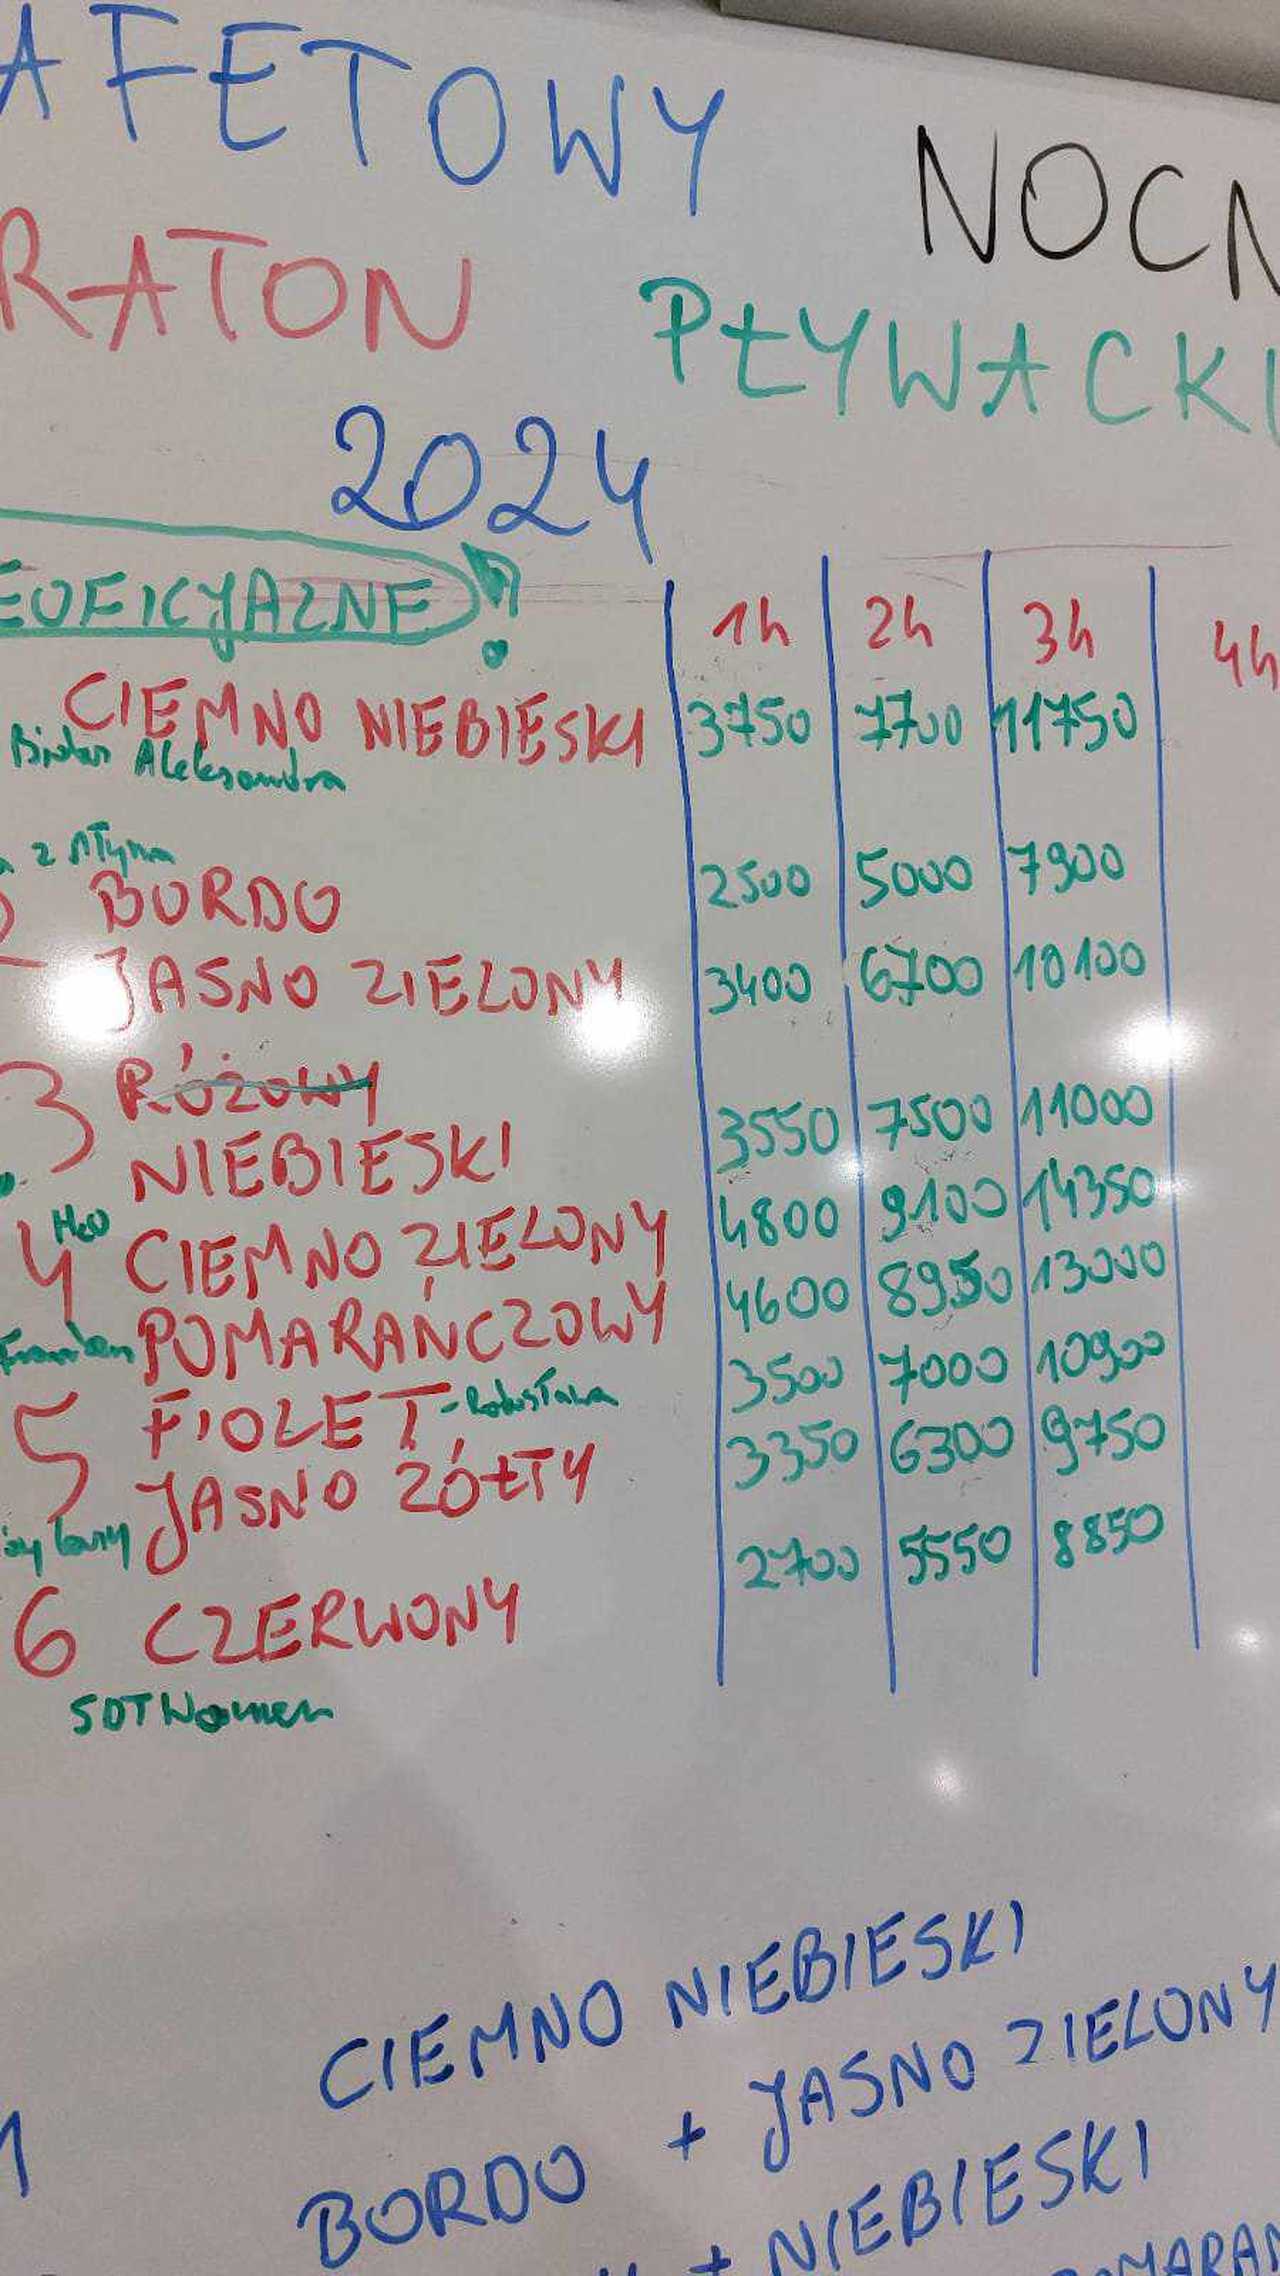 AFETOWY NOCN
RATON PŁYWACKI
2024
EOFICYJALNE !
1h 2h 3h 4h
CIEMNO NIEBIESKI 3750 7700 11750
Aleksandra
z Młyna
BORDO 2500 5000 7900
JASNO ZIELONY 3400 6700 10100
3 RÓŻOWY
NIEBIESKI 3550 7500 11000
4 H2O CIEMNO ZIELONY 4800 9100 14350
POMARAŃCZOWY 4600 8950 13000
5 FIOLET - 3500 7000 10900
JASNO ŻÓŁTY 3350 6300 9750
6 CZERWONY 2700 5550 8850
SDT Women
CIEMNO NIEBIESKI
1 BORDO + JASNO ZIELONY
+ NIEBIESKI
POMARAN